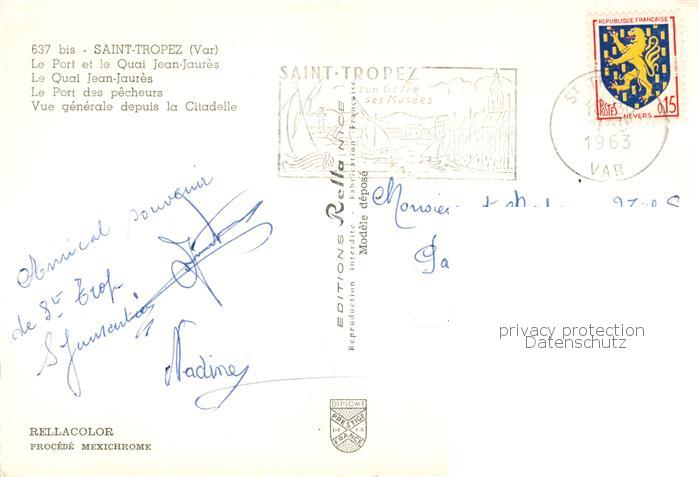 637 bis - SAINT-TROPEZ (Var)
Le Port et le Quai Jean-Jaurès
Le Quai Jean-Jaurès
Le Port des pêcheurs
Vue générale depuis la Citadelle
SAINT-TROPEZ
son Golfe
ses Musées
REPUBLIQUE FRANÇAISE
POSTES
0,15
NEVERS
ST
1963
VAR
Amical souvenir
de St Trop.
Nadine
EDITIONS Rella NICE
Reproduction interdite - Fabrication Française
Modèle déposé
Monsie
privacy protection
Datenschutz
DIPLOME
PRESTIGE
DE LA
FRANCE
RELLACOLOR
PROCÉDÉ MEXICHROME